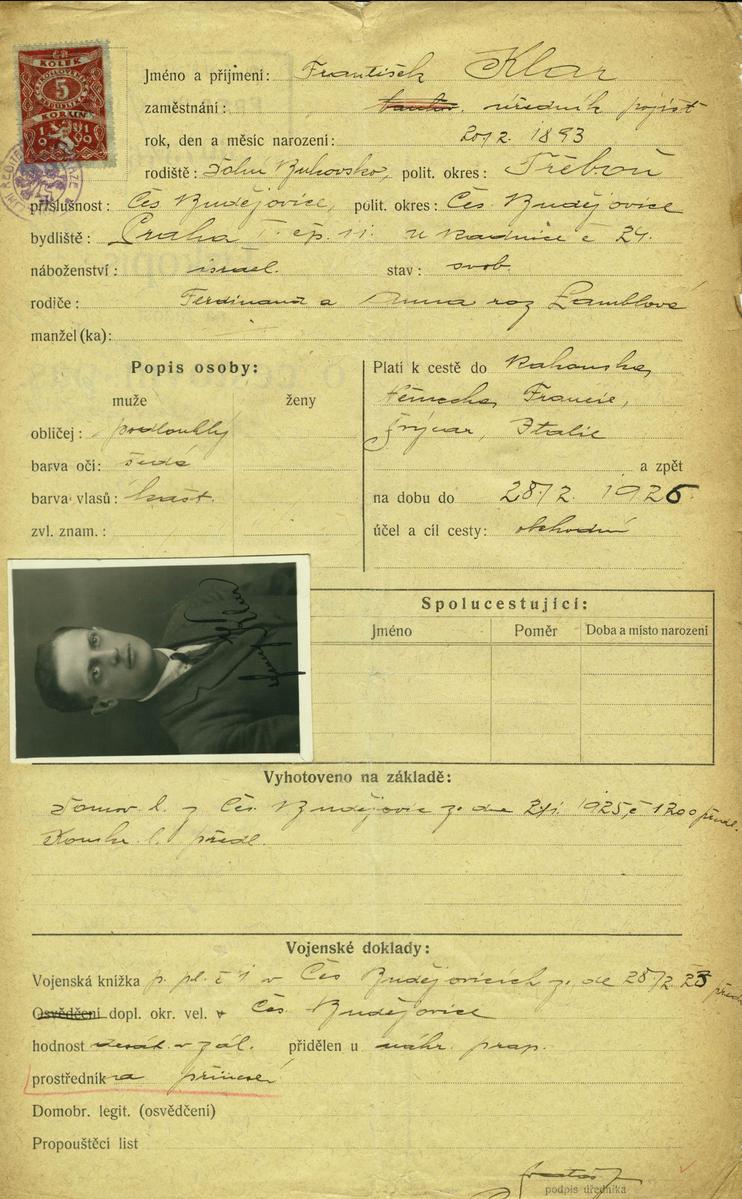 KOLEK
5
KORUN
1919
Jméno a příjmení: František Klar
zaměstnání: úředník pojišť
rok, den a měsíc narození: 20/2. 1893
rodiště: Dolní Bukovsko, polit. okres: Třeboň
příslušnost: Čes Budějovice, polit. okres: Čes. Budějovice
bydliště: Praha I. čp. 11. u radnice č 24.
náboženství: israel. stav: svob.
rodiče: Ferdinand a Anna roz
manžel (ka):
Popis osoby:
muže ženy
obličej: podlouhlý
barva očí: šedé
barva vlasů: kašt.
zvl. znam.:
Platí k cestě do Rakouska,
Německa, Francie,
Švýcar, Italie
a zpět
na dobu do 28./2. 1926
účel a cíl cesty: obchodní
Spolucestující:
Jméno Poměr Doba a místo narození
Vyhotoveno na základě:
Domov. l. z Čes. Budějovic ze dne 2/1. 1925, č 1200 předl.
l. předl.
Vojenské doklady:
Vojenská knížka p. pl. č 1 v Čes Budějovicích ze de 28/2 23
Osvědčení dopl. okr. vel. v Čes. Budějovice
hodnost v zál. přidělen u náhr. prap.
prostředník a
Domobr. legit. (osvědčení)
Propouštěcí list
podpis úředníka